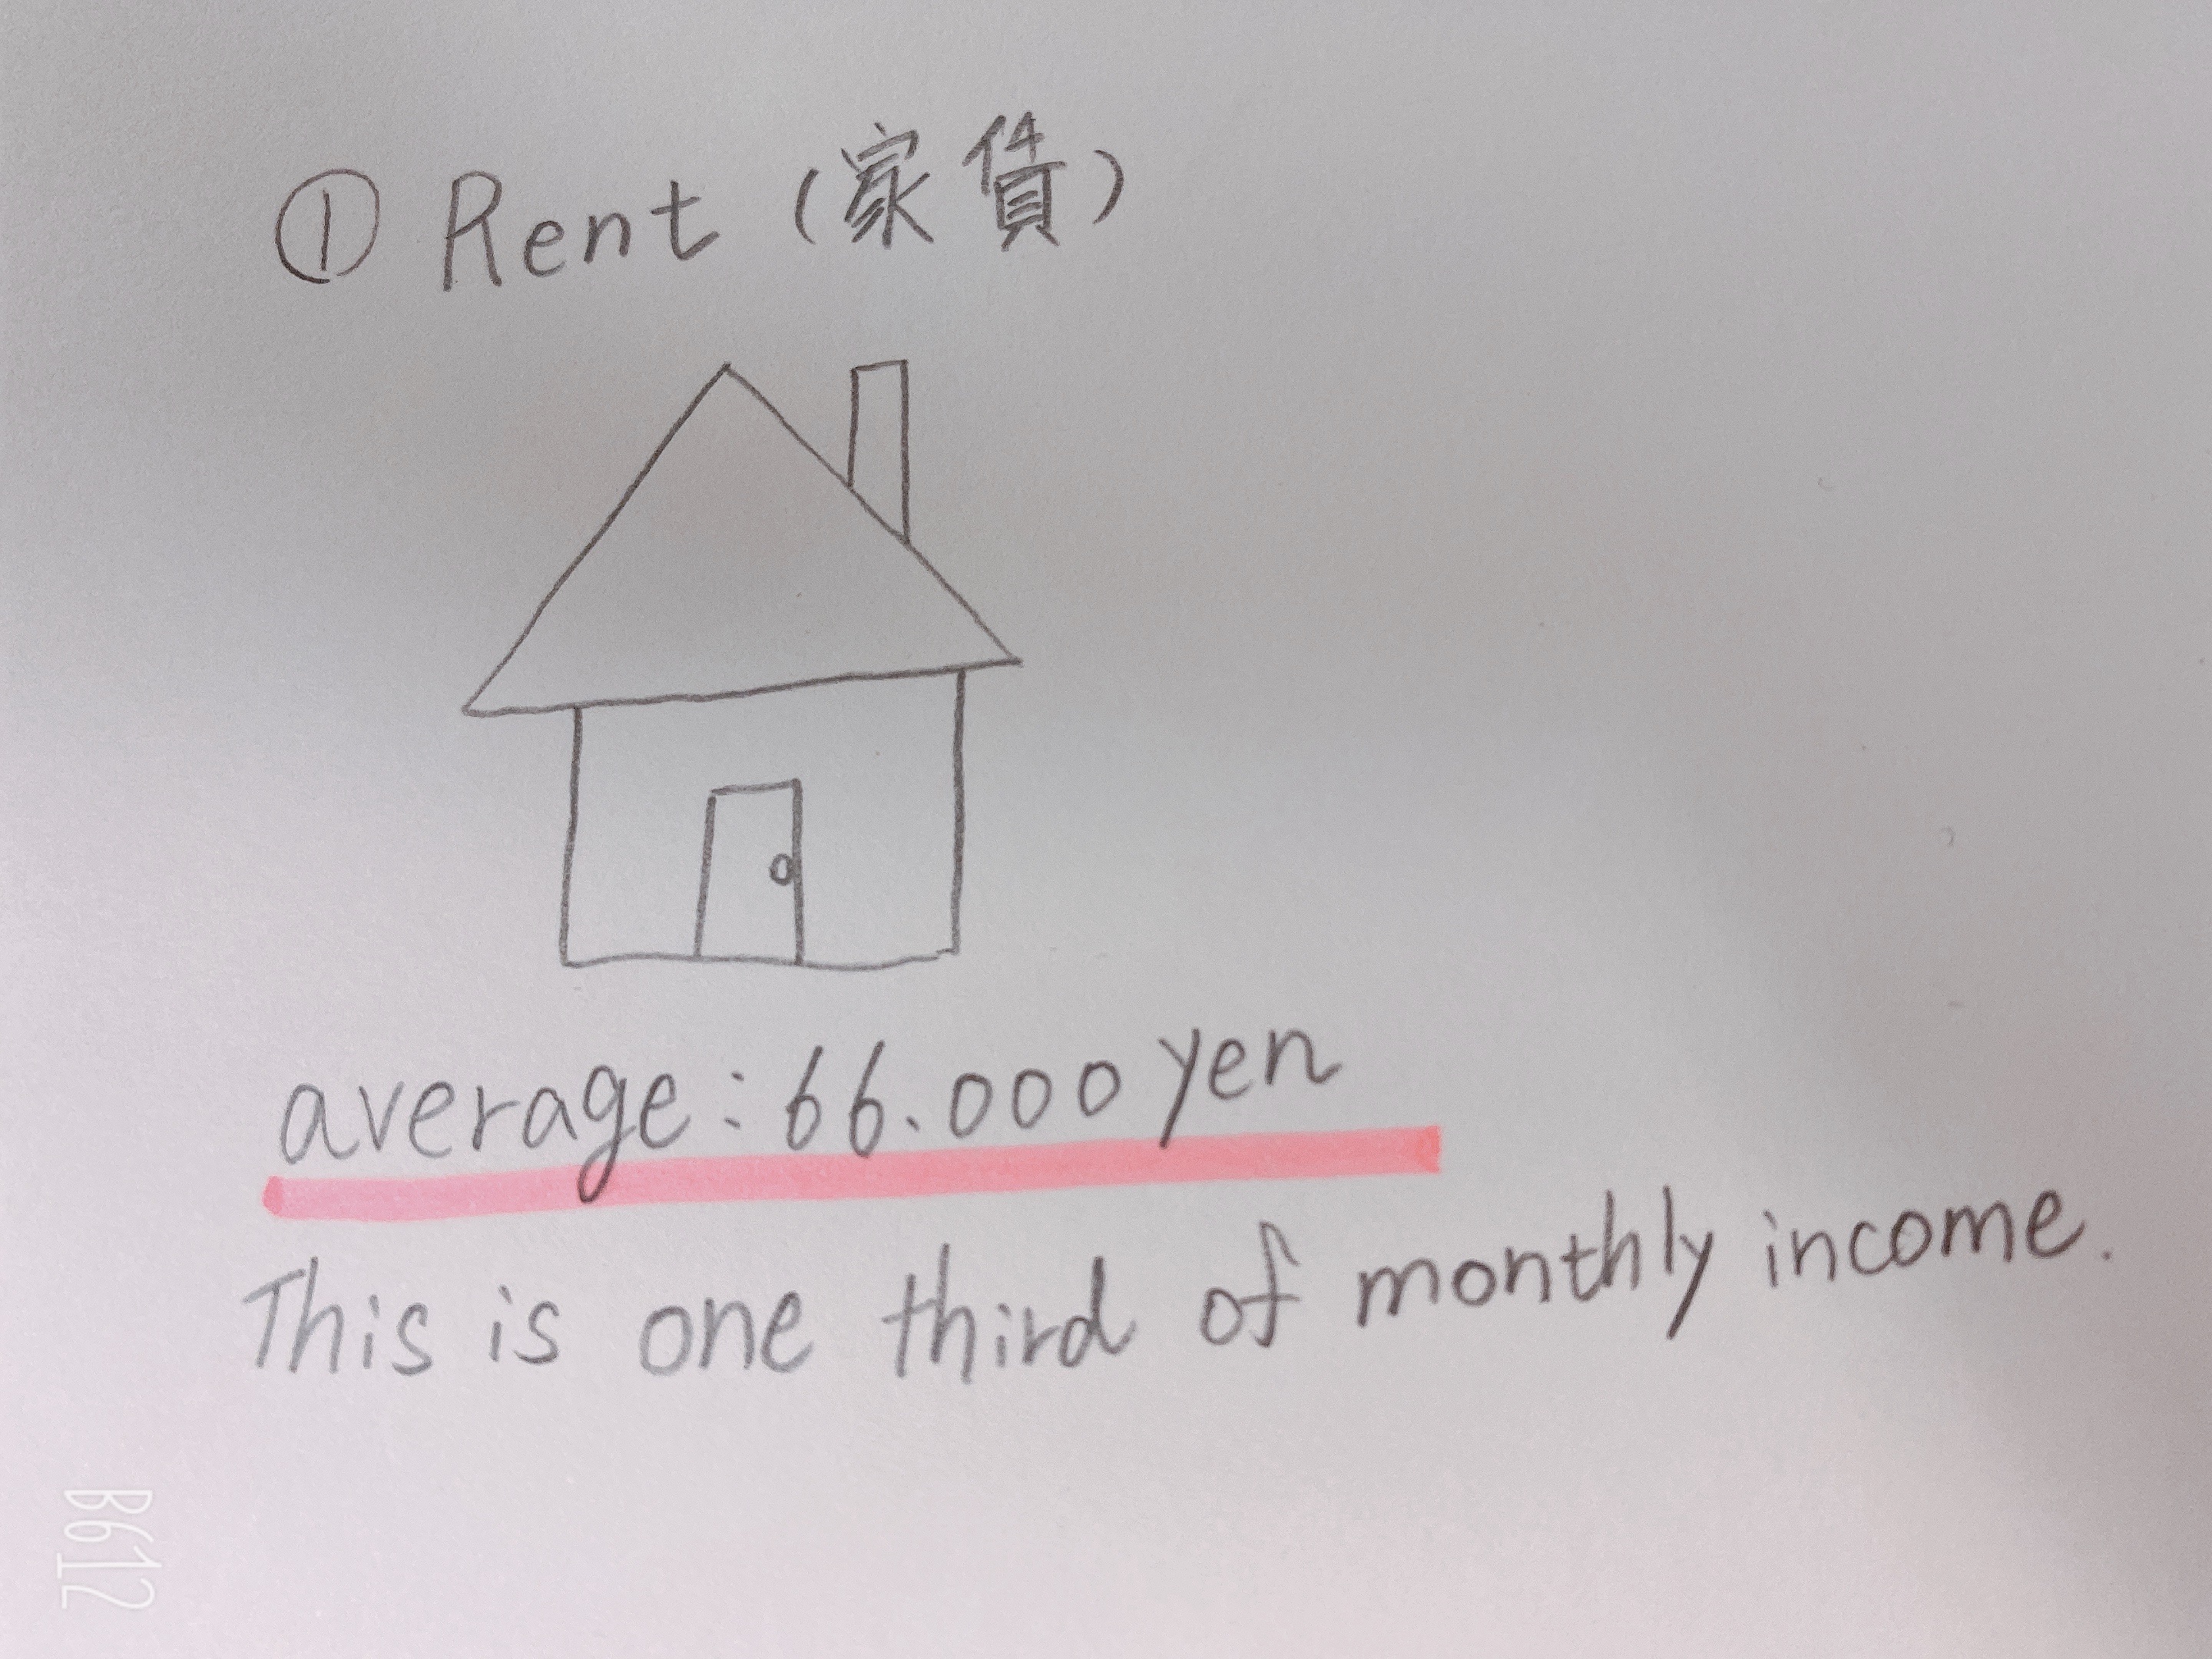 ① Rent (家賃)
average: 66.000 yen
This is one third of monthly income.
B612